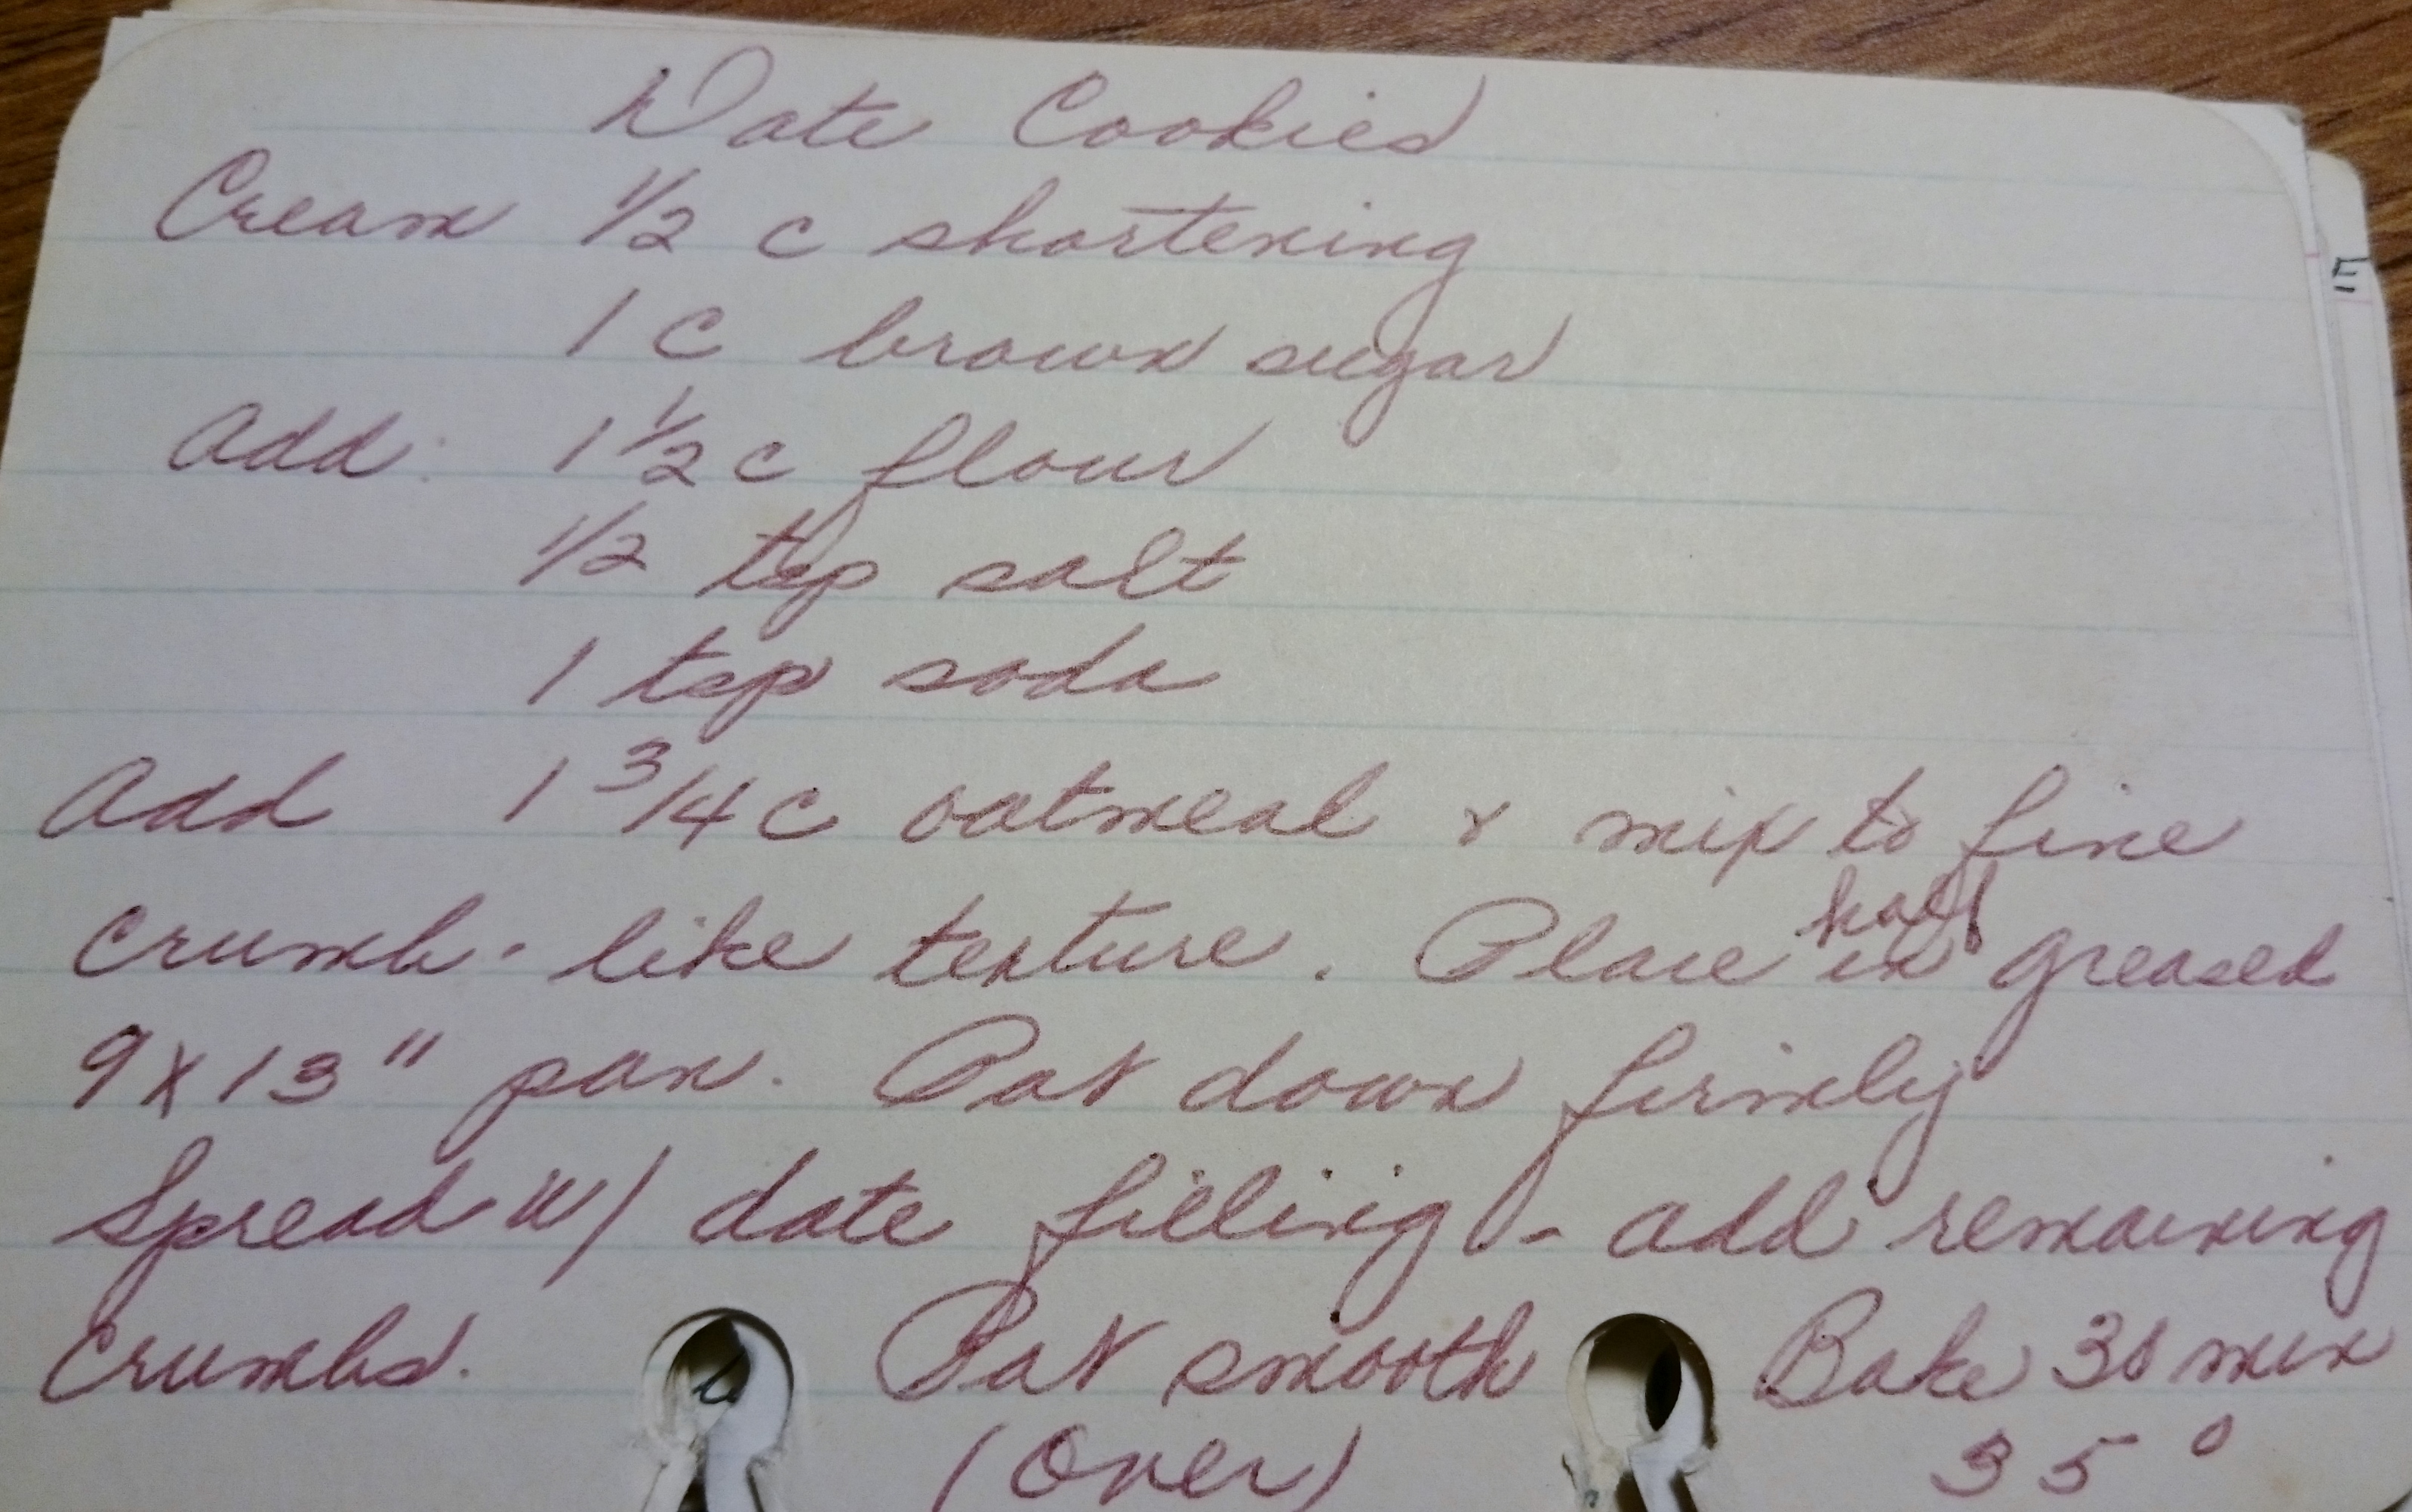 Date Cookies
Cream 1/2 c shortening
1 c brown sugar
Add: 1 1/2 c flour
1/2 tsp salt
1 tsp soda
Add 1 3/4 c oatmeal & mix to fine
half
crumb-like texture. Place in greased
9 x 13" pan. Pat down firmly
Spread w/ date filling - add remaining
crumbs. Pat smooth Bake 30 min
(Over) 35°